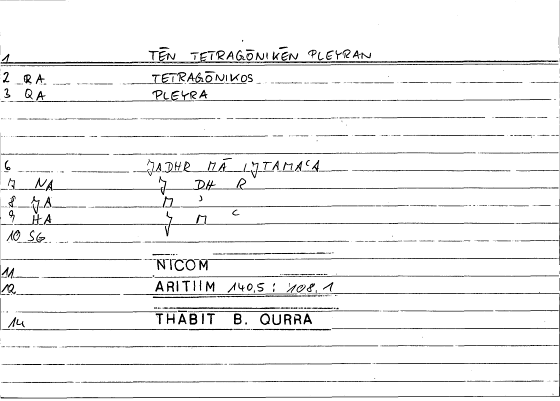 1 TĒN TETRAGŌNIKĒN PLEYRAN
2 RA TETRAGŌNIKOS
3 QA PLEYRA
6 ǦADHR MĀ IǦTAMAʿA
7 NA Ǧ DH R
8 ǦA M ʾ
9 HA Ǧ M ʿ
10 SG
11 NICOM
12 ARITIIM 140,5 : 108,1
14 THABIT B. QURRA